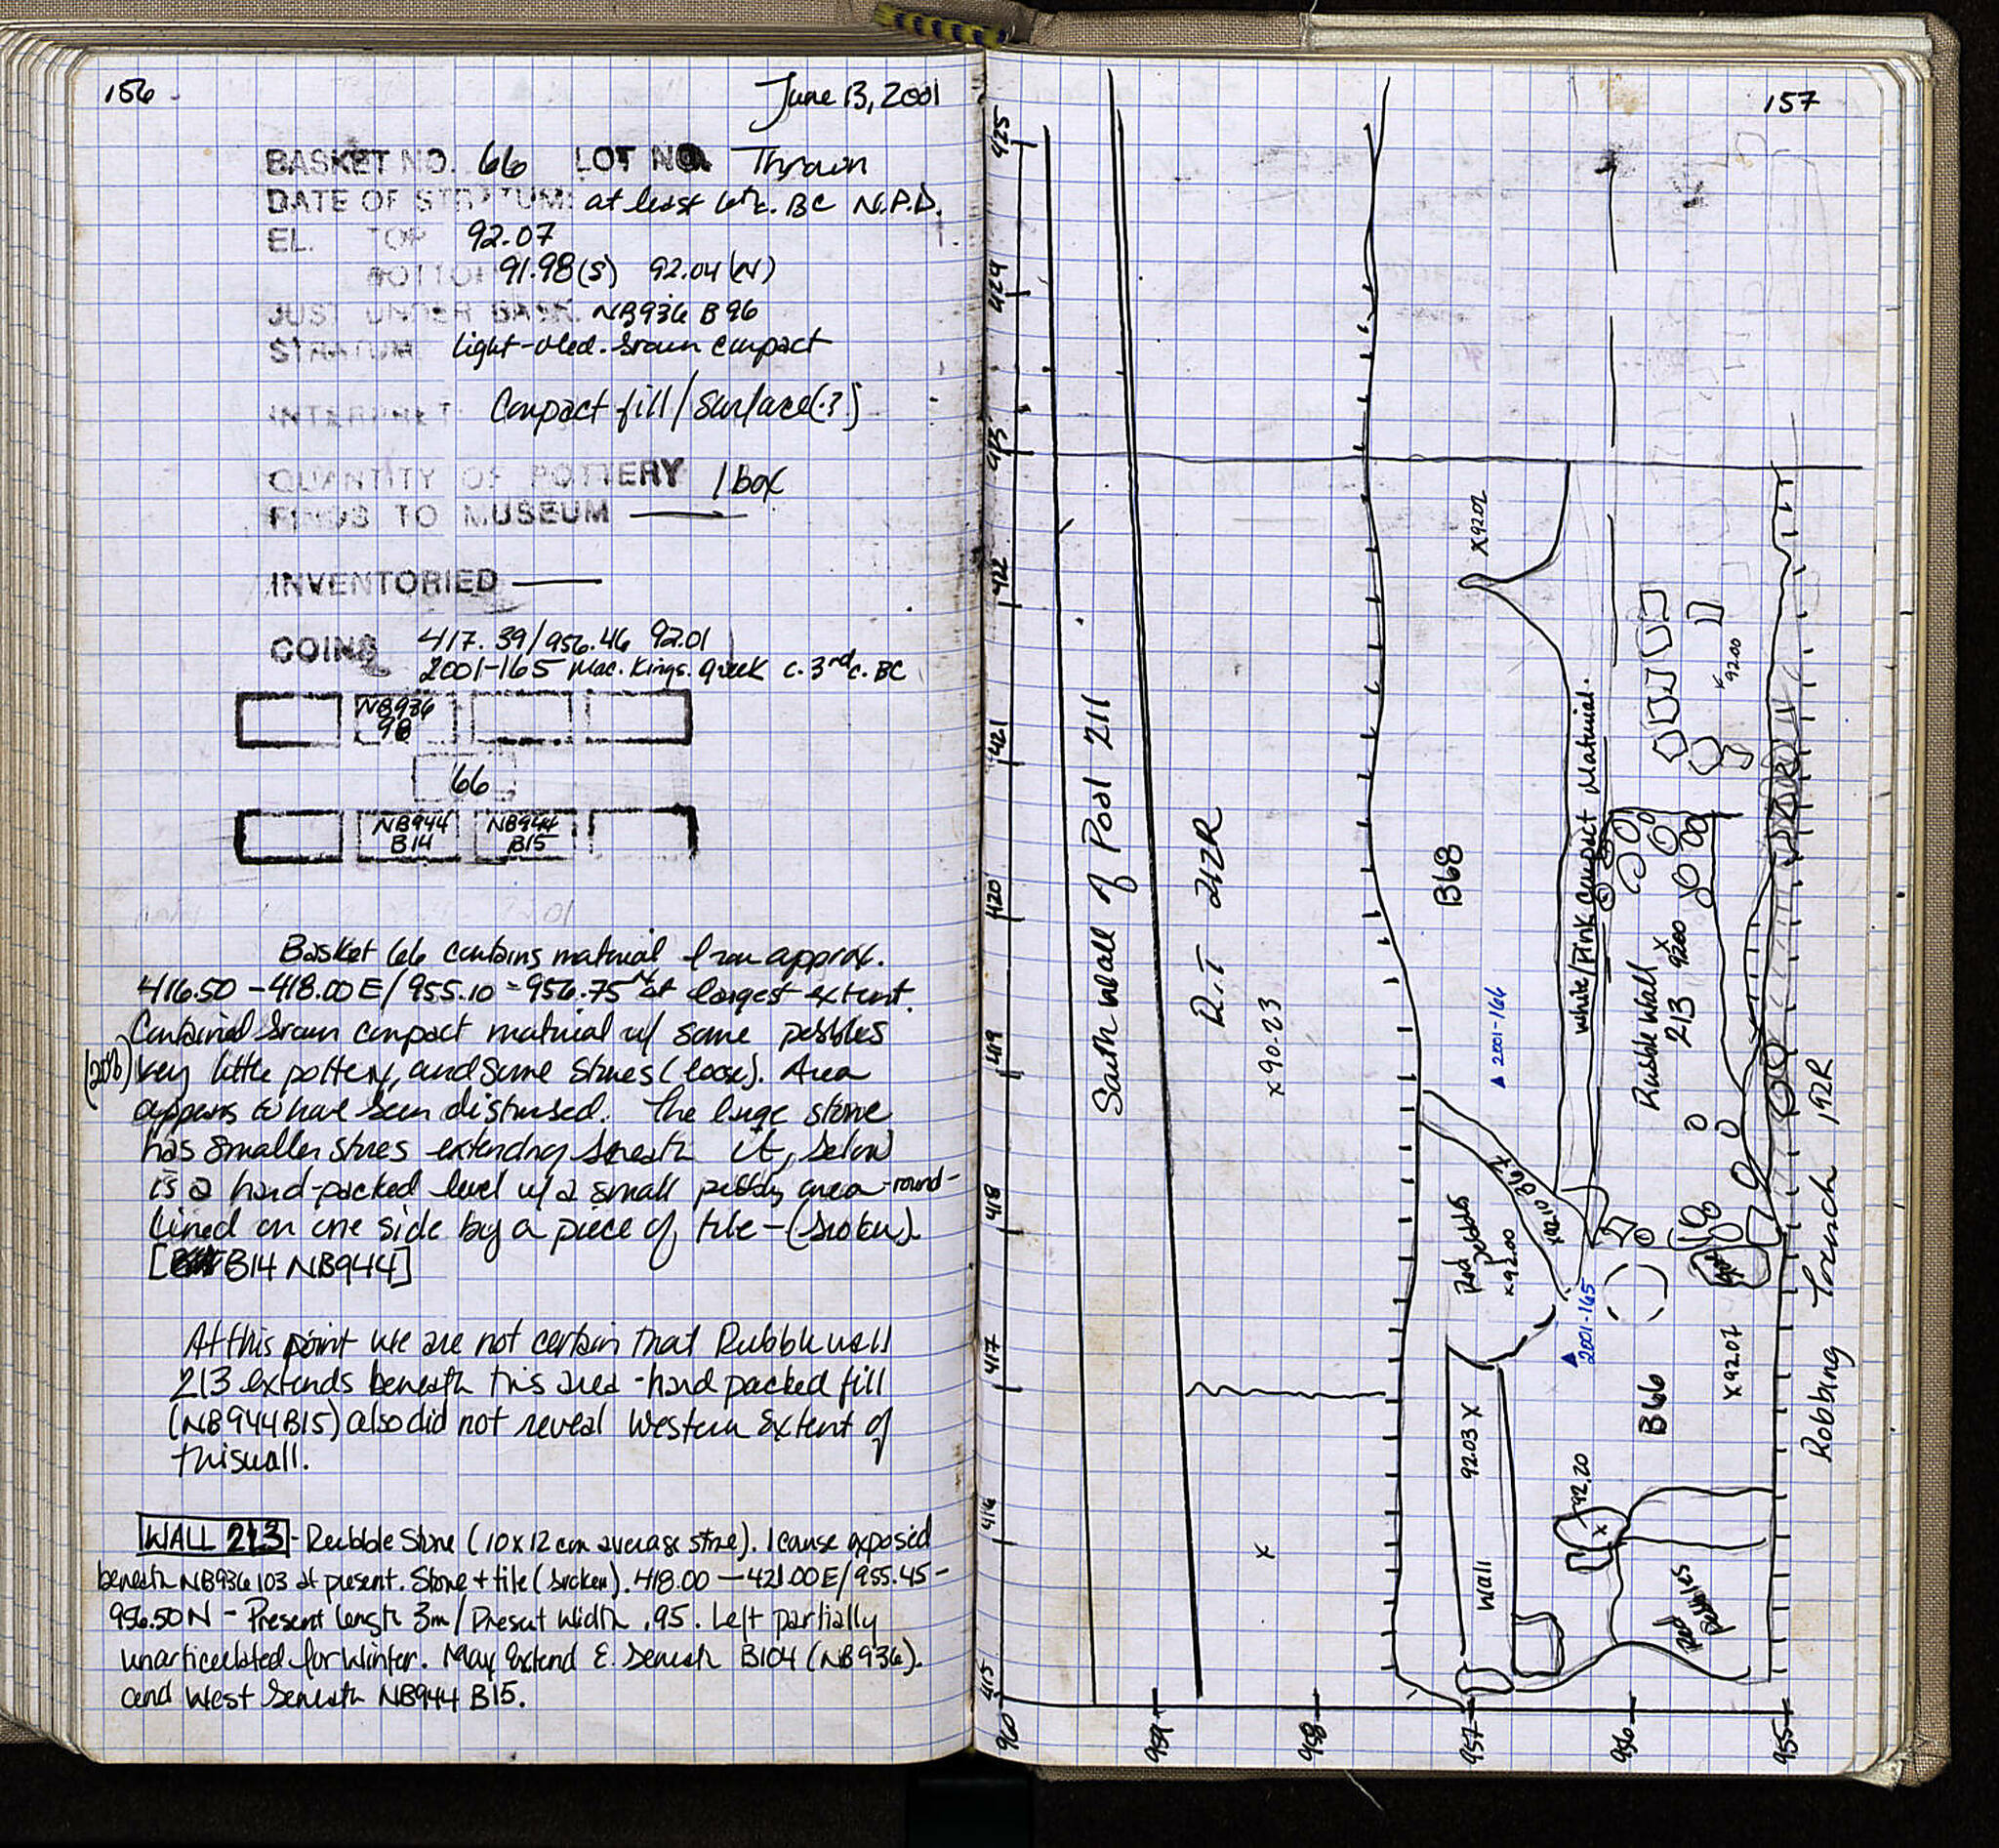 156
June 13, 2001
BASKET NO. 66 LOT NO. Thrown
DATE OF STRATUM: at least 6th c. BC N.P.D.
EL. TOP 92.07
BOTTOM 91.98(S) 92.04(N)
JUST UNDER BASK. NB936 B96
STRATUM light-med. brown compact
INTERPRET. Compact fill/surface(?)
QUANTITY OF POTTERY 1 box
FINDS TO MUSEUM —
INVENTORIED —
COINS 417.39/956.46 92.01
2001-165 Mac. Kings. Greek c. 3rd c. BC
NB936
98
66
NB944
B14
NB944
B15
Basket 66 contains material from approx.
416.50 - 418.00 E/955.10 - 956.75 N at largest extent.
Contained brown compact material w/ some pebbles
(20%) very little pottery, and some stones (loose). Area
appears to have been disturbed. The large stone
has smaller stones extending beneath it, below
is a hard-packed level w/ a small pebbly area - round -
lined on one side by a piece of tile - (broken).
[B14 NB944]
At this point we are not certain that Rubble wall
213 extends beneath this area - hard packed fill
(NB944 B15) also did not reveal Western Extent of
this wall.
WALL 213 - Rubble Stone (10x12 cm average stone). 1 course exposed
beneath NB936 103 at present. Stone + tile (broken). 418.00 — 421.00 E/955.45 -
956.50 N - Present length 3m/Present Width .95. Left partially
unarticulated for winter. May Extend E. beneath B104 (NB936).
and West beneath NB944 B15.
157
425
424
423
422
421
420
419
418
417
416
415
960
959
958
957
956
955
South wall of Pool 211
R.T 212R
x 90.23
x
B68
x 92.02
▲ 2001-166
White/Pink Compact Material.
Rubble Wall
213
x
92.00
x
92.00
Red
Pebbles
x 92.00
x 92.10 B67
▲
2001-165
B66
x 92.07
92.03 x
Wall
92.20
x
Red
Pebbles
Robbing Trench 192R